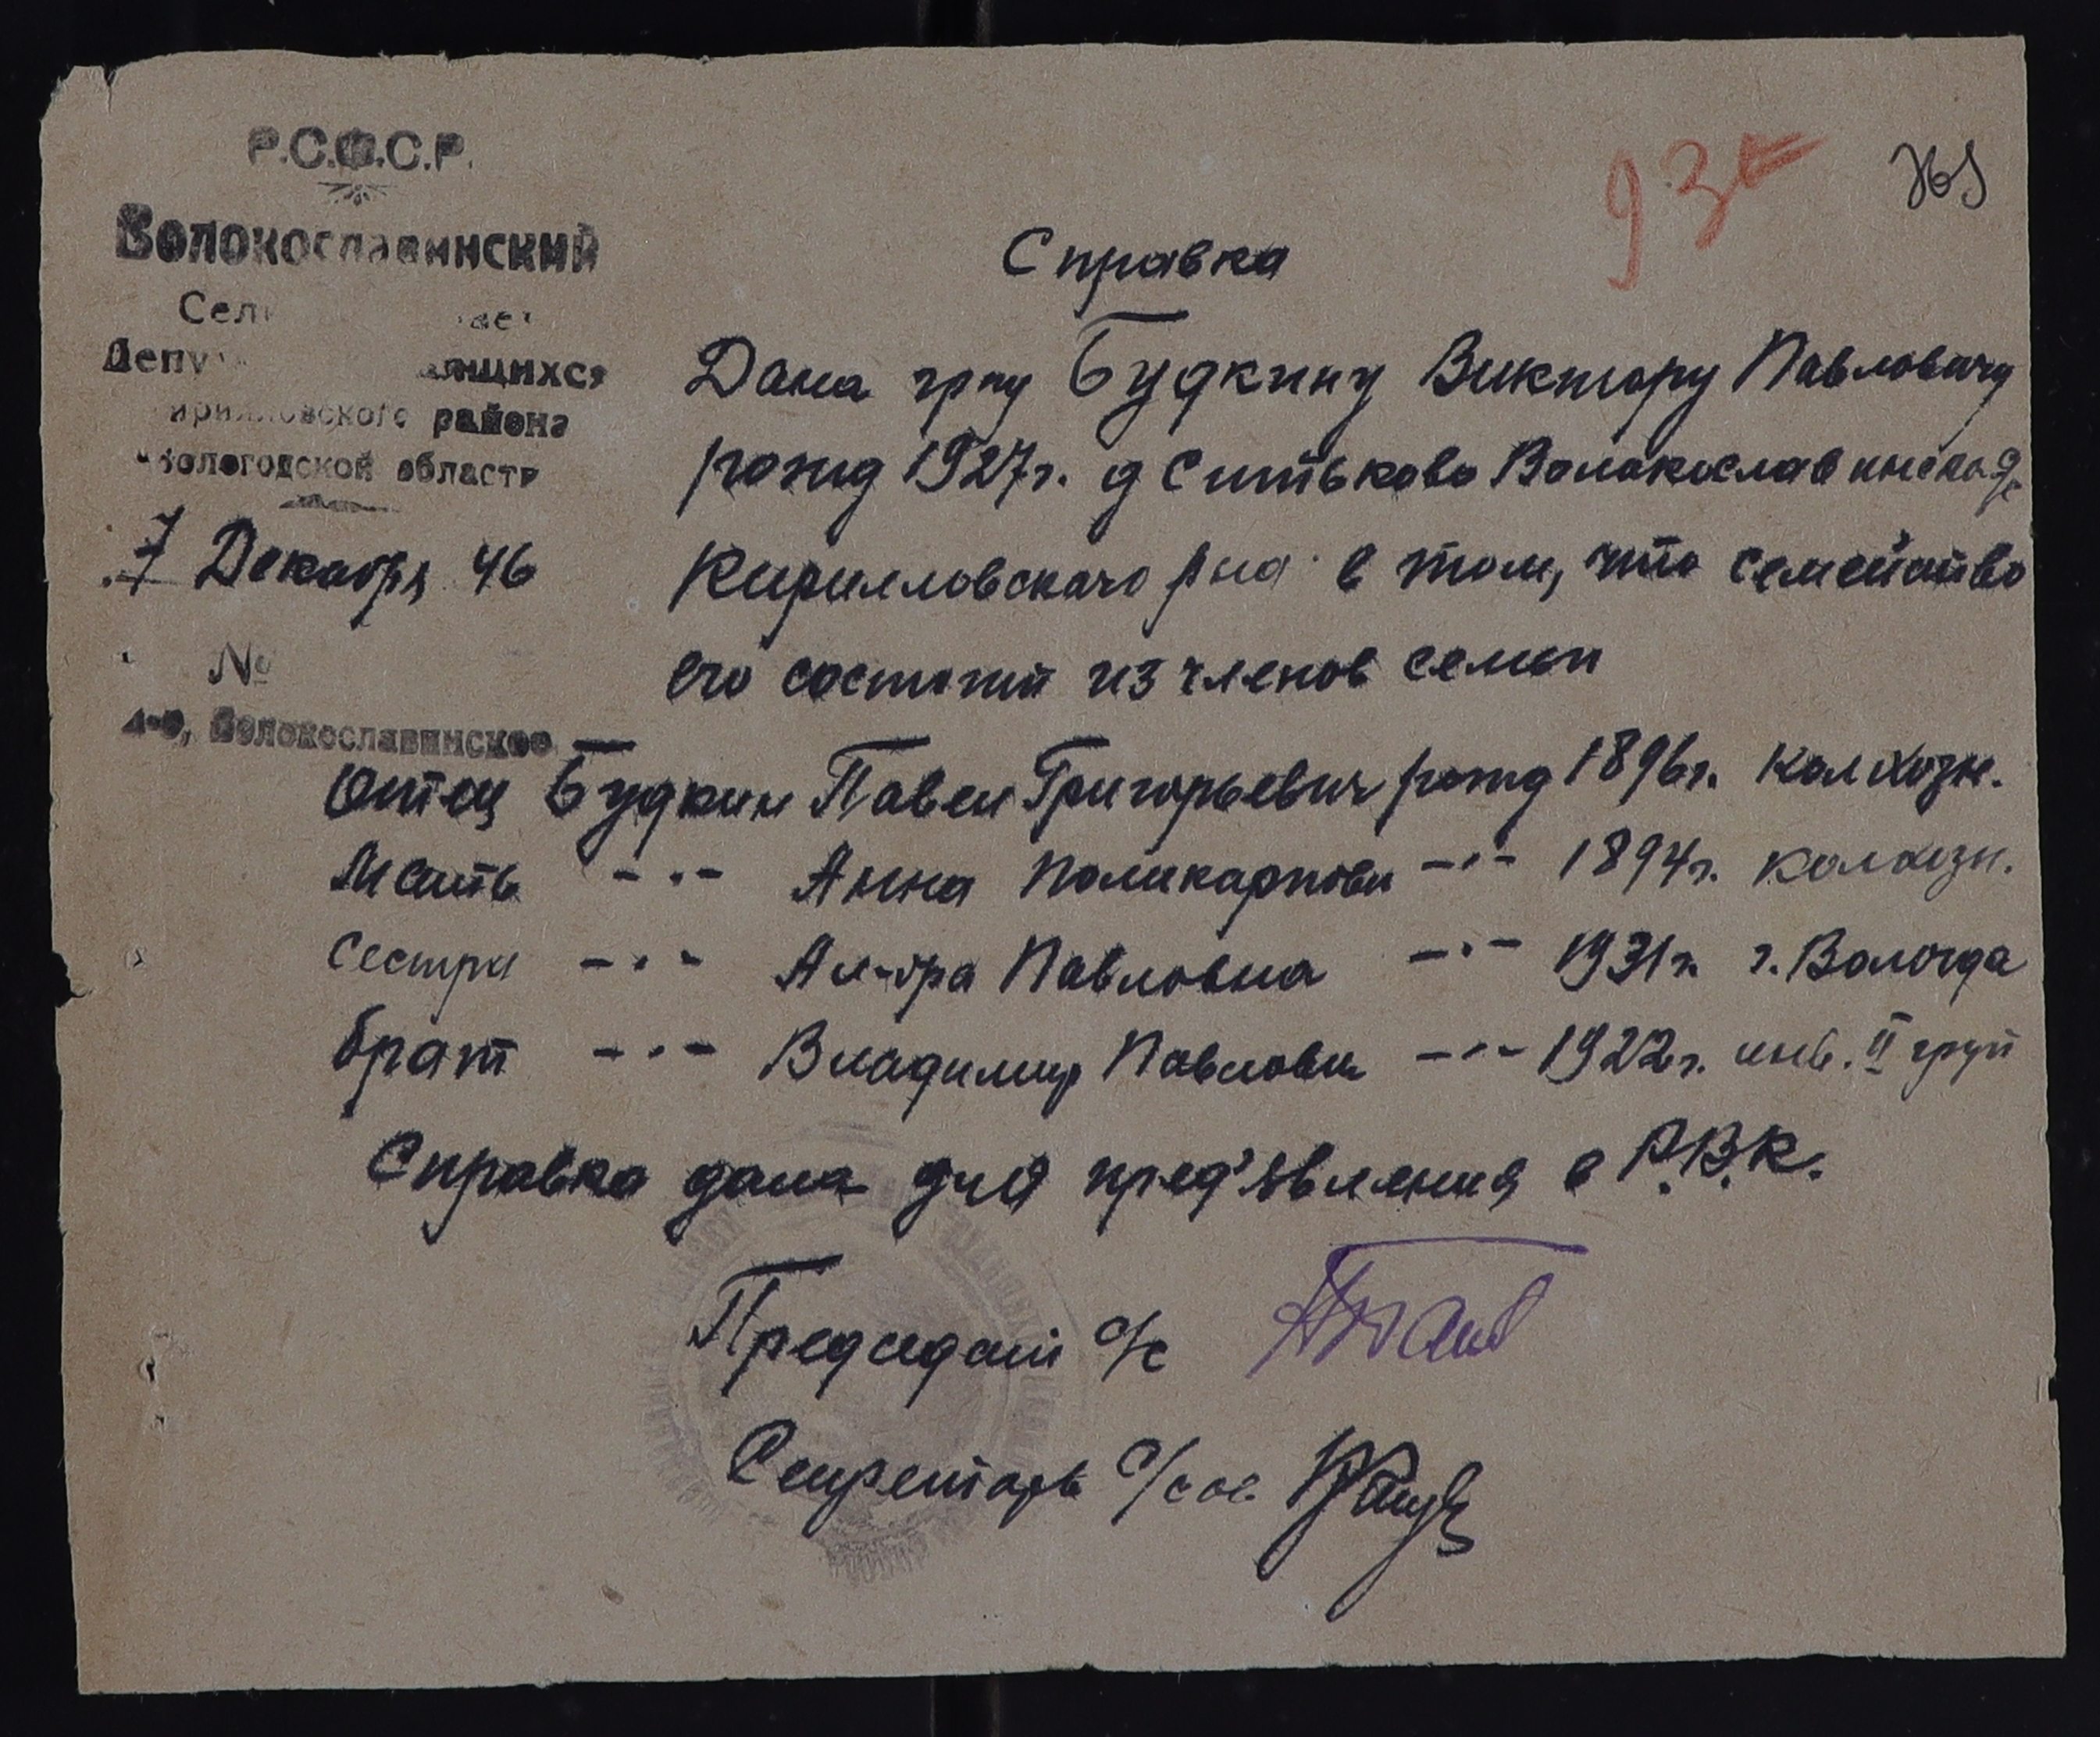 Р.С.Ф.С.Р.
Волокославинский
Сел
Депу ящихся
ирилловского района
Вологодской области
7 Декабря 46
№
Волокославинское
93
Справка
Дана гр-ну Будкину Виктору Павловичу
рожд 1927г. д Ситьково Волокославинского
Кирилловского р на в том, что семейство
его состоит из членов семьи
Отец Будкин Павел Григорьевич рожд 1896г. колхозн.
Мать -"- Анна Поликарповн -"- 1894г. колхозн.
Сестра -"- Ал-дра Павловна -"- 1931г. г. Вологда
брат -"- Владимир Павлович -"- 1922г. инв. II груп
Справка дана для пред'явления в Р.В.К.
Председат с/с
Секретарь с/сов